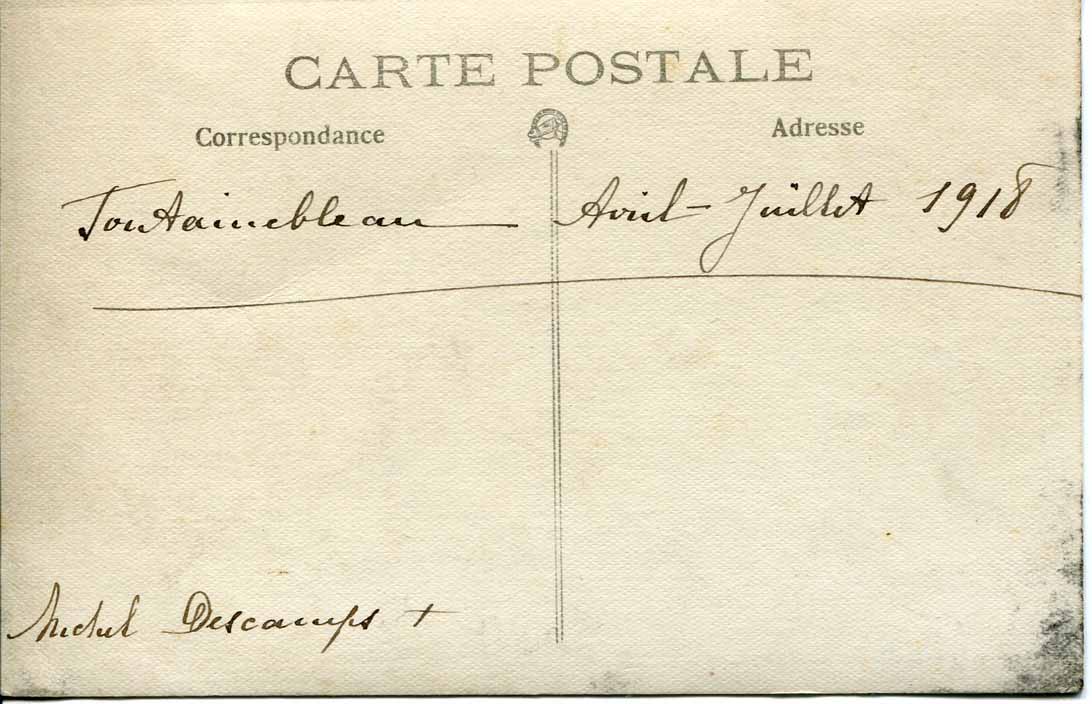 CARTE POSTALE
Correspondance Adresse
Fontainebleau — Avril - Juillet 1918
Michel Descamps +